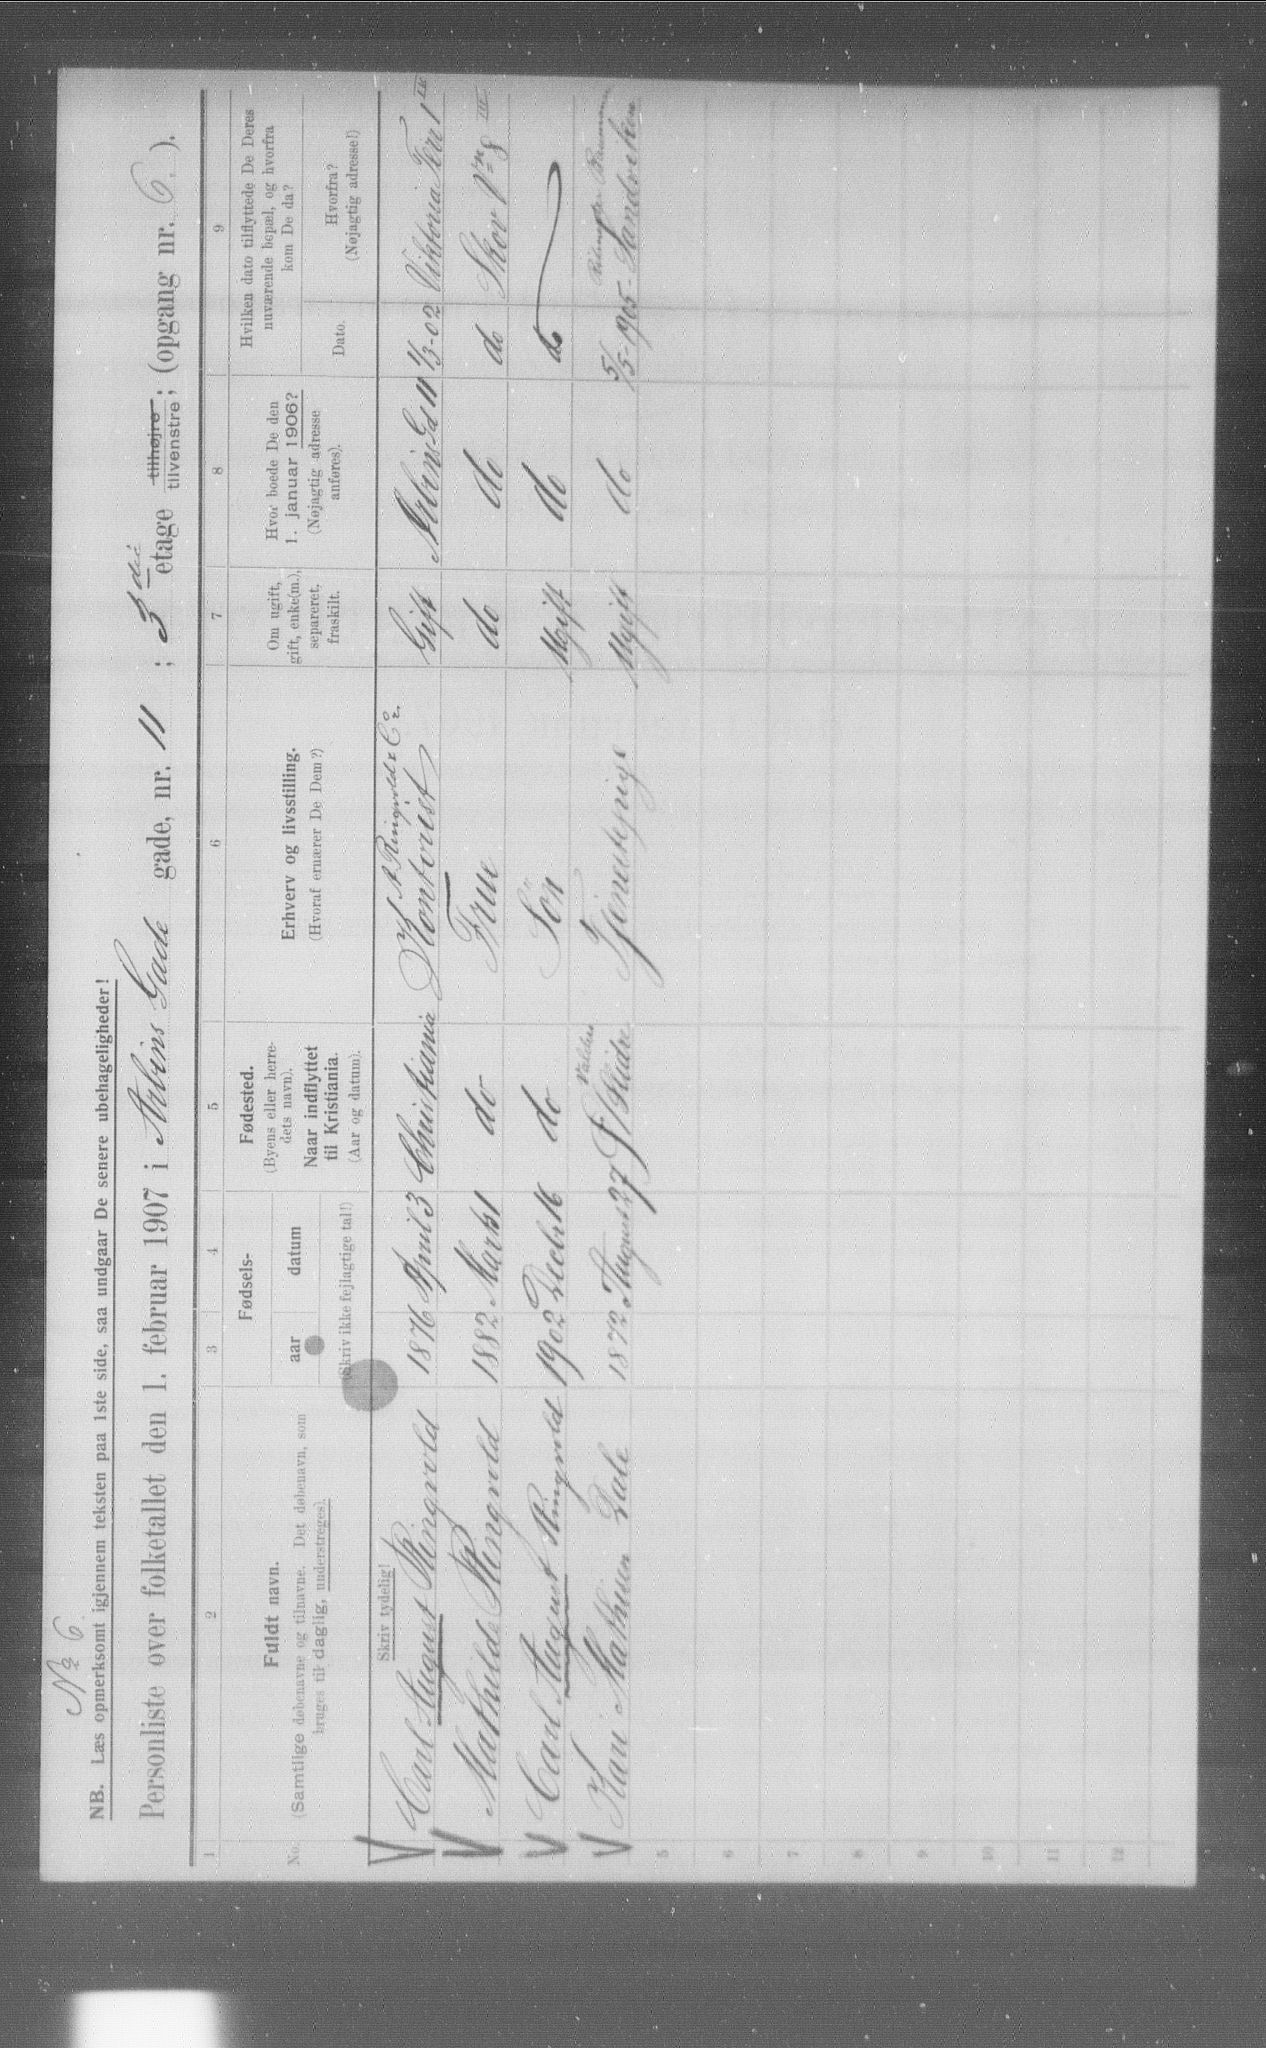 No 6
NB. Læs opmerksomt igjennem teksten paa 1ste side, saa undgaar De senere ubehageligheder!
Personliste over folketallet den 1. februar 1907 i Arbins Gade gade, nr. 11 ; 3 die etage tilhøjre tilvenstre ; (opgang nr. 6 ).
1 2 3 4 5 6 7 8 9
No. Fuldt navn. (Samtlige døbenavne og tilnavne. Det døbenavn, som bruges til daglig, understreges).
Fødsels- aar datum (Skriv ikke fejlagtige tal!)
Fødested. (Byens eller herredets navn). Naar indflyttet til Kristiania. (Aar og datum).
Erhverv og livsstilling. (Hvoraf ernærer De Dem?)
Om ugift, gift, enke(m.), separeret, fraskilt.
Hvor boede De den 1. januar 1906? (Nøjagtig adresse anføres).
Hvilken dato tilflyttede De Deres nuværende bopæl, og hvorfra kom De da?
Dato. Hvorfra? (Nøjagtig adresse!)
Skriv tydelig!
Carl August Ringvold 1876 April 3 Christiania Kontorist A Ringvold & Co. Gift Arbinsgd 11 1/3-02 Viktoria Terr 1 III
Mathilde Ringvold 1882 Marts 1 do Frue do do do Skov Vn 8 III
Carl August Ringvold 1902 Decbr 16 do Søn Ugift do do
Kari Mathisen Dale 1872 August 27 Slidre Valders Tjenestepige Ugift do 5/5-1905 Sandviken
5
6
7
8
9
10
11
12